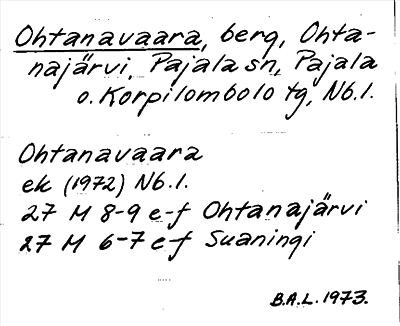 Ohtanavaara, berg, Ohta-
najärvi, Pajala sn, Pajala
o. Korpilombolo tg, Nb.l.
Ohtanavaara
ek (1972) Nb.l.
27 M 8-9 e-f Ohtanajärvi
27 M 6-7 e-f Suaningi
B.A.L. 1973.